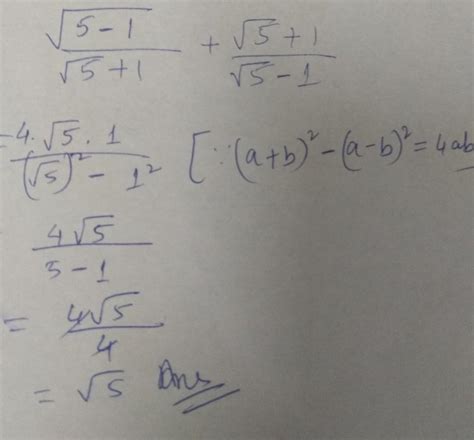 √(5-1)/(√5+1) + (√5+1)/(√5-1)
= 4·√5·1/((√5)² - 1²) [∵(a+b)² - (a-b)² = 4ab
4√5/(5-1)
= 4√5/4
= √5 Ans